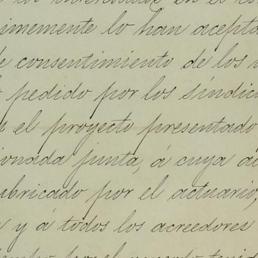 imemente lo han acepta
e consentimiento de los
pedido por los síndic
el proyecto presentado
ionada junta, á cuya ac
ubricado por el actuario,
y á todos los acreedores